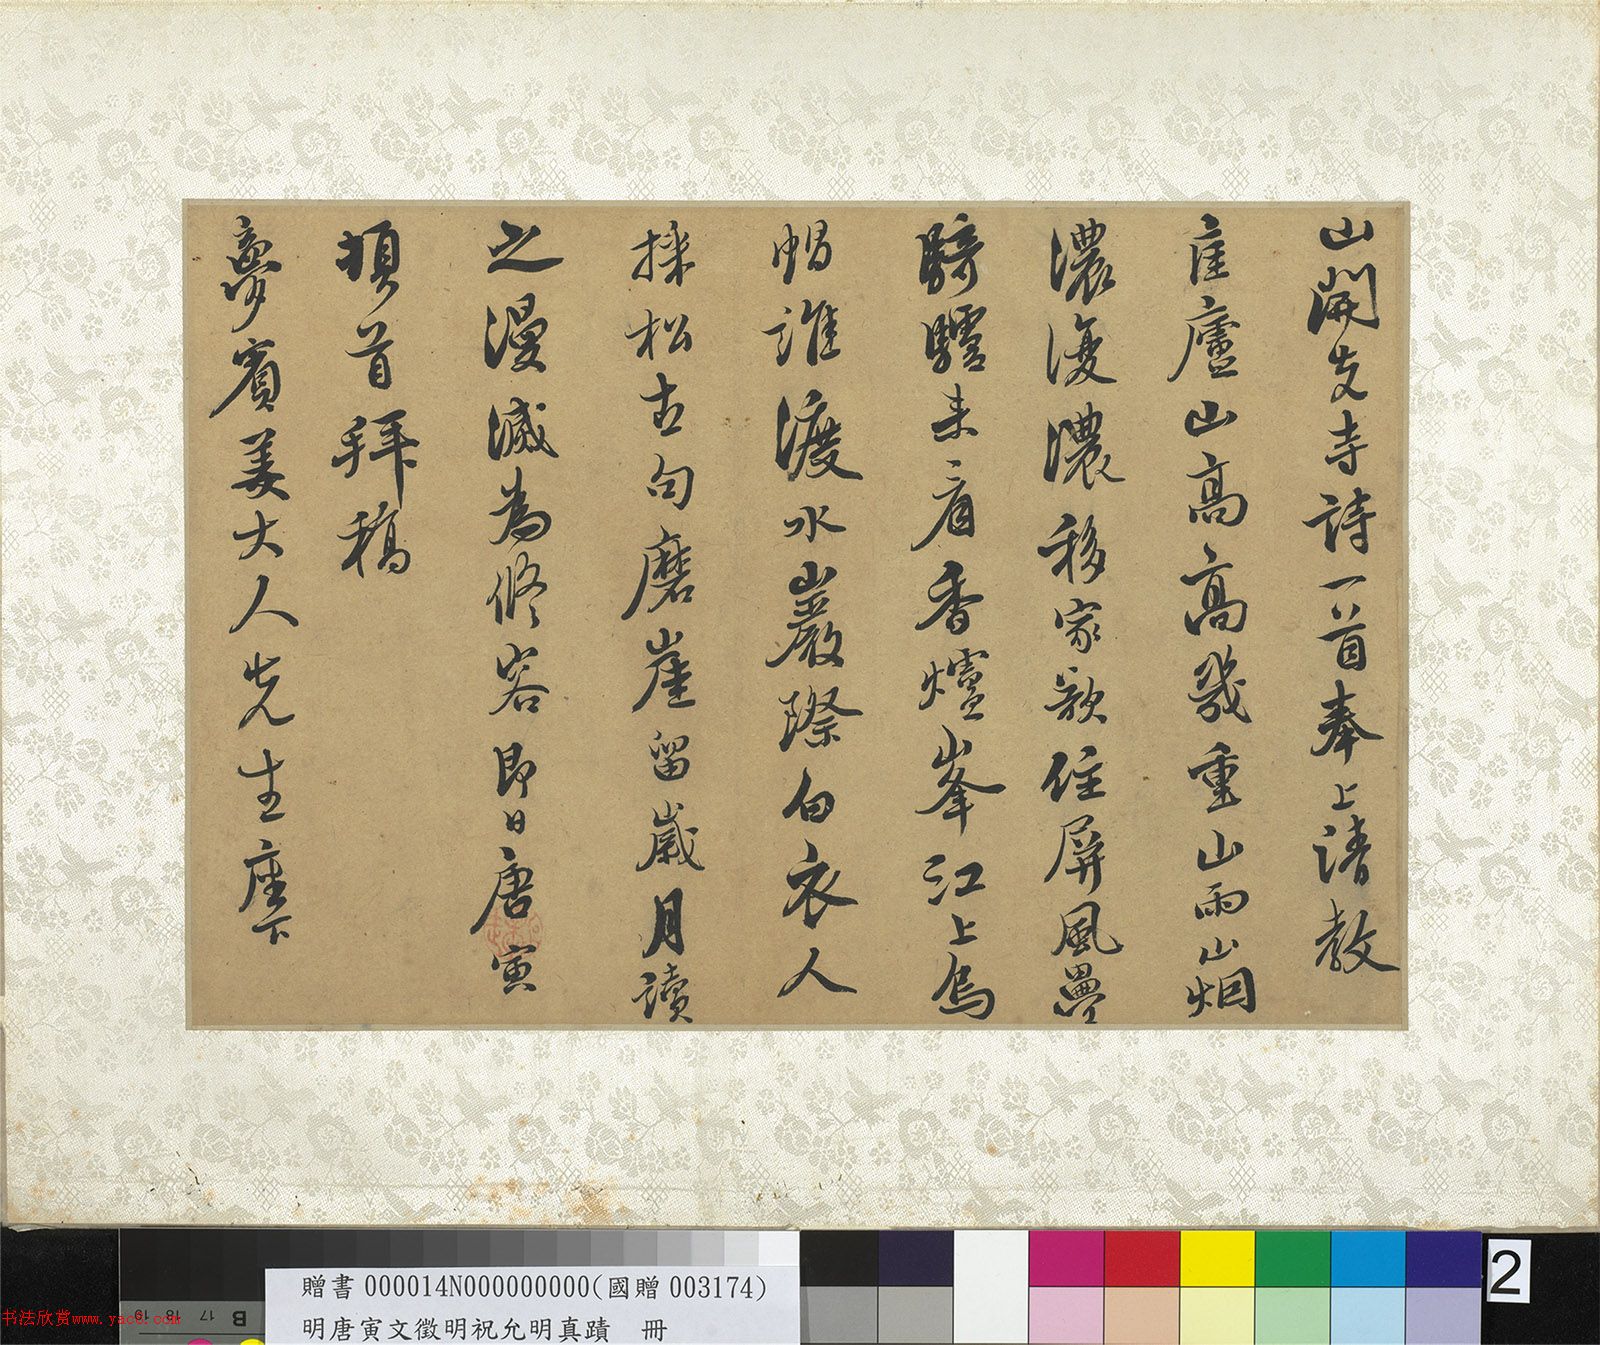 山開先寺詩一首奉上請教
匡廬山高高幾重山雨山烟
濃復濃移家欲住屏風疊
騎驢來看香爐峯江上烏
帽誰渡水巖際白衣人
採松古句磨崖留歲月讀
之漫滅為修容即日唐寅
頓首拜稿
夢賓姜大人先生座下
贈書000014N000000000(國贈 003174)
明唐寅文徵明祝允明真蹟 冊
书法欣赏www.yac8.com
2
B 17 18 19